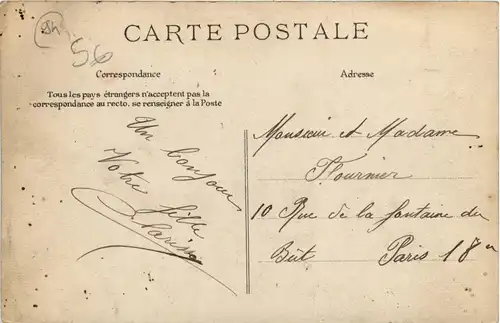 84
56
CARTE POSTALE
Correspondance
Tous les pays étrangers n'acceptent pas la
correspondance au recto, se renseigner à la Poste
Un bonjour
Votre fille
Clarisse
Adresse
Monsieur et Madame
Flournier
10 Rue de la fontaine du
But Paris 18e